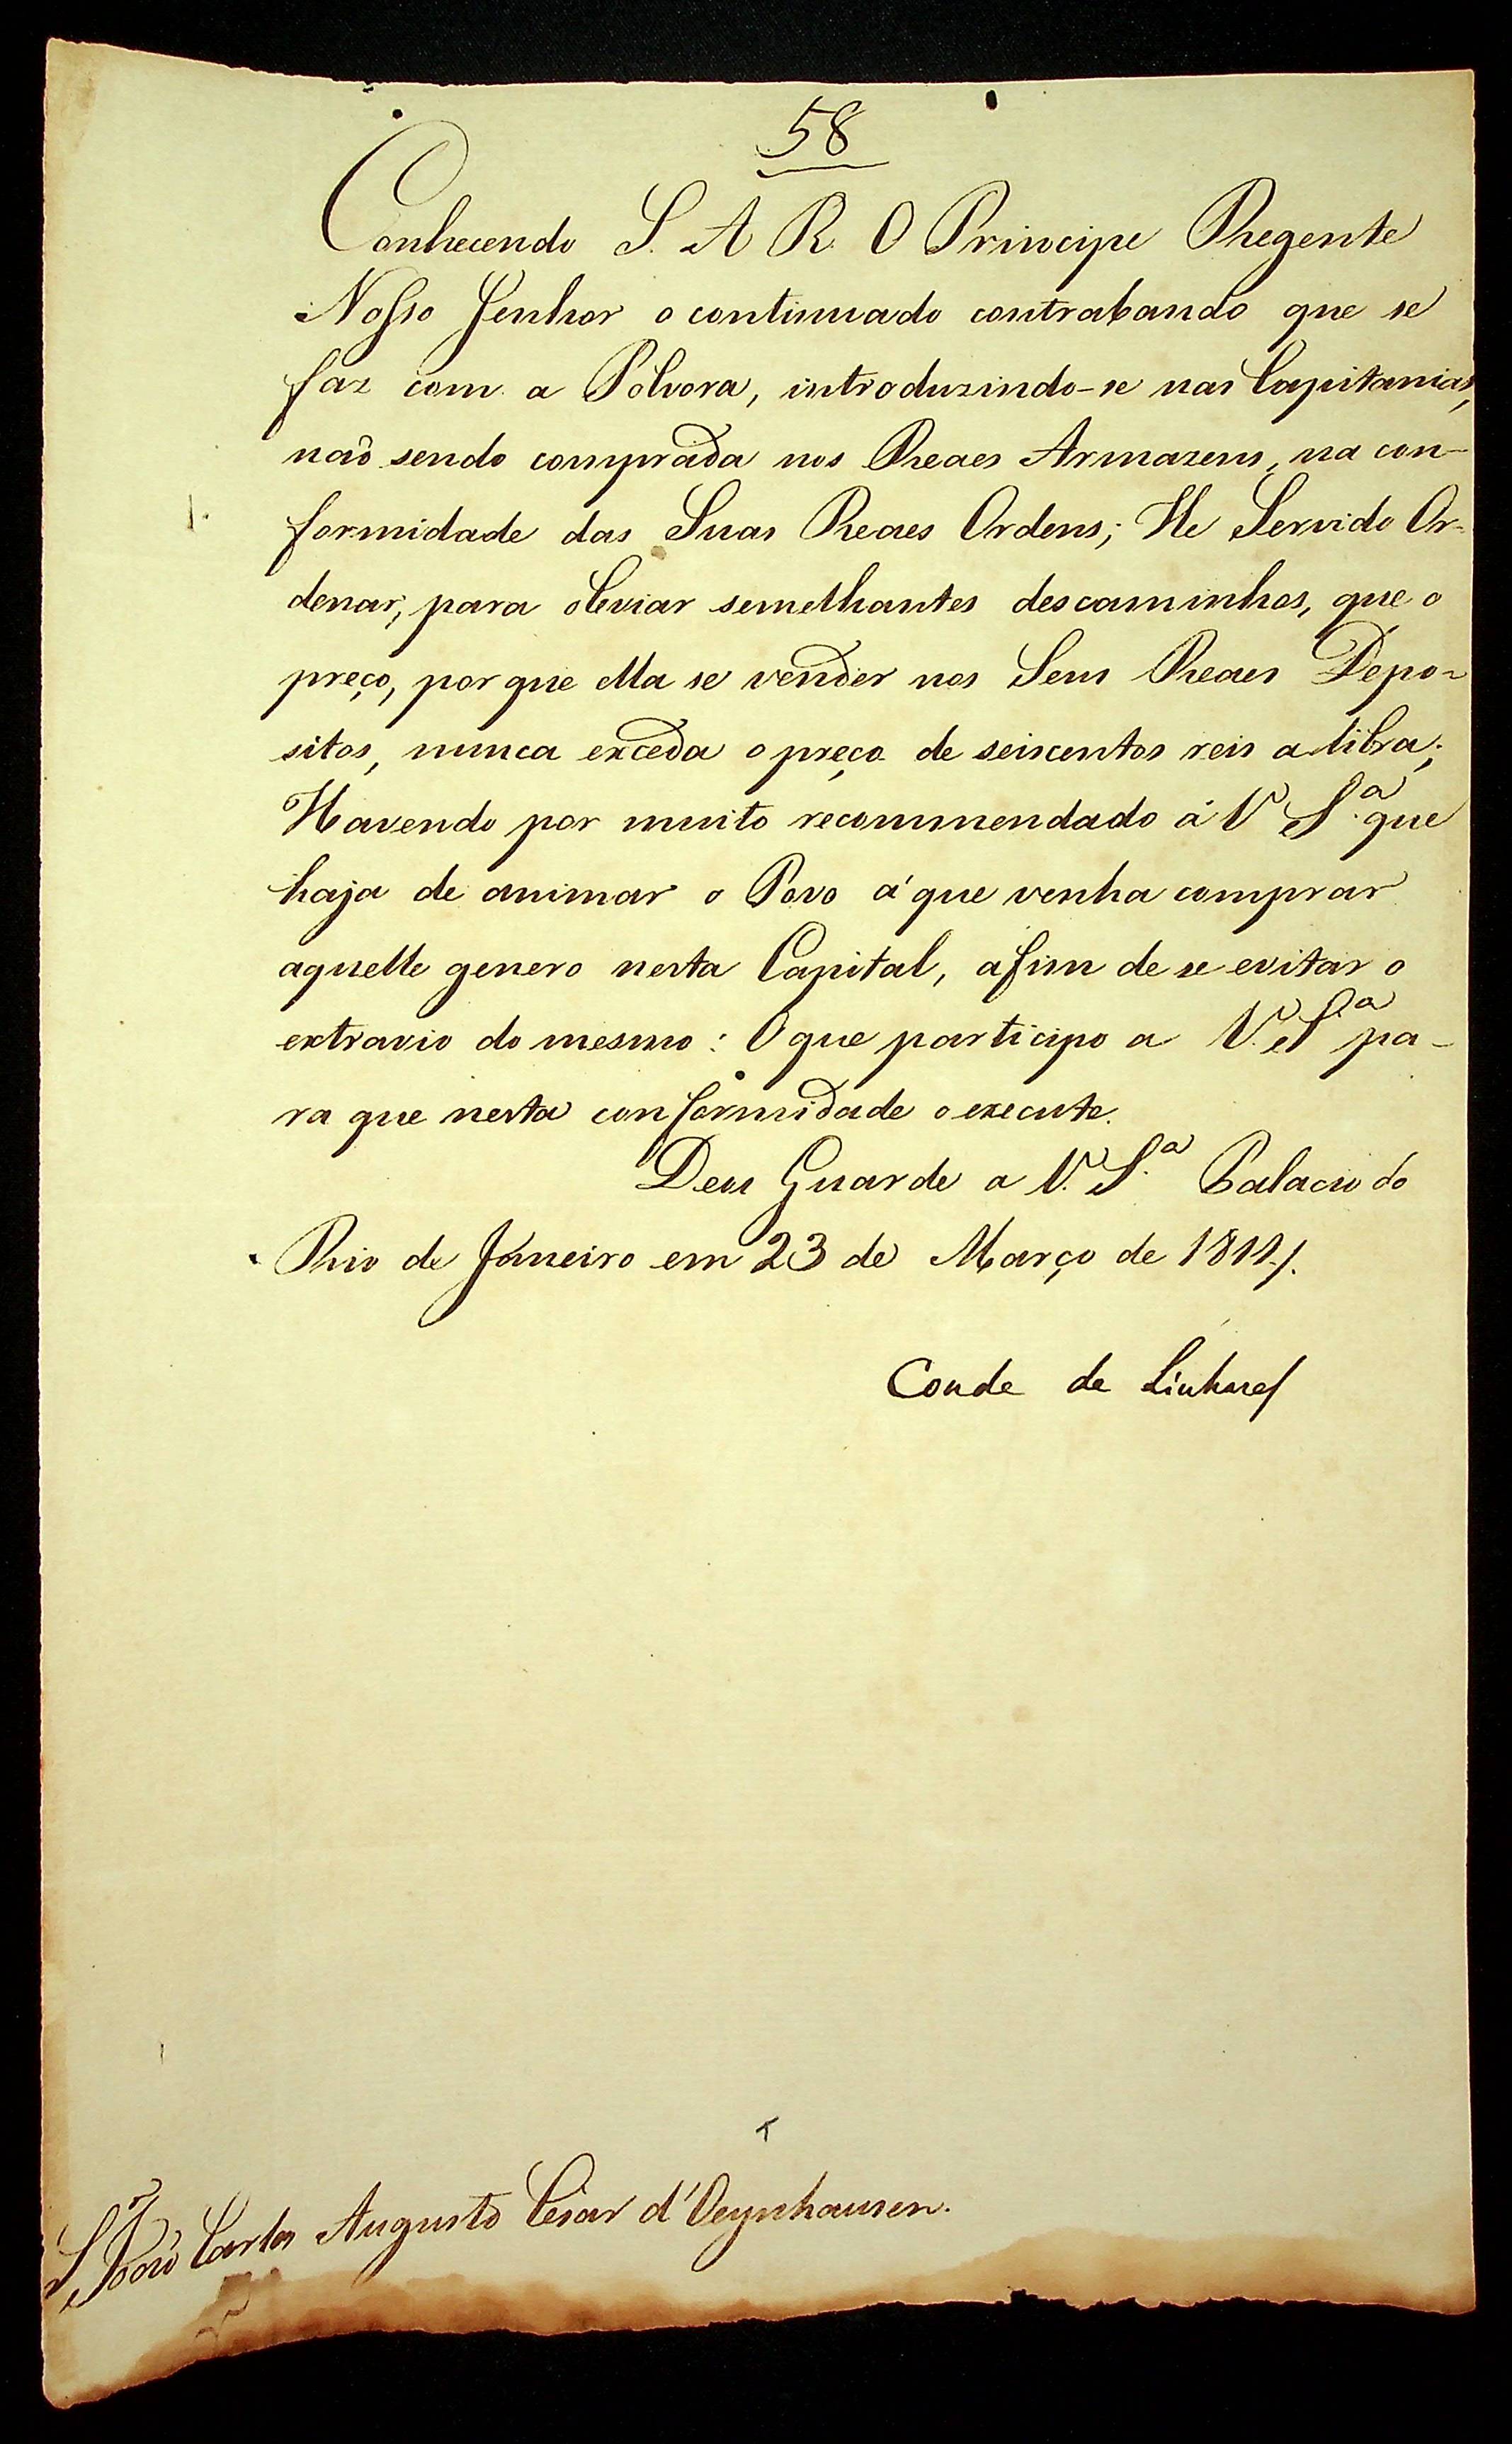 58
Conhecendo S. A R. O Principe Regente
Nosso Senhor o continuado contrabando que se
faz com a Polvora, introduzindo-se nas Capitanias,
naõ sendo comprada nos Reaes Armazens, na con-
formidade das Suas Reaes Ordens; He Servido Or-
denar, para obviar semelhantes descaminhos, que o
preço, por que ella se vender nos Seus Reaes Depo-
sitos, nunca exceda o preço de seiscentos reis a libra;
Havendo por muito recommendado á V S.ª que
haja de animar o Povo á que venha comprar
aquelle genero nesta Capital, afim de se evitar o
extravio do mesmo: O que participo a V. S.ª pa-
ra que nesta conformidade o execute.
Deus Guarde a V. S.ª Palacio do
Rio de Janeiro em 23 de Março de 1811./.
Conde de Linhares
S.r Joaõ Carlos Augusto Cesar d'Oeynhausen.